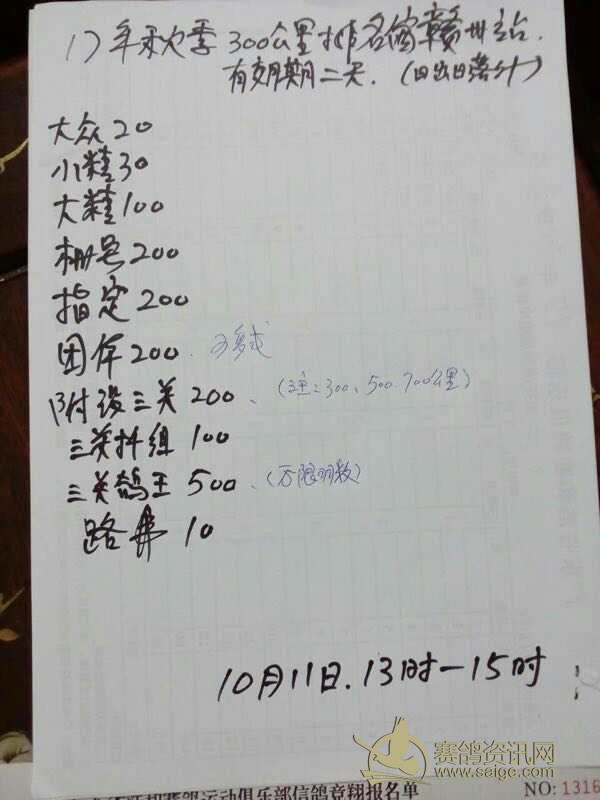 17年秋季300公里排名富赣州站.
有效期二天. (日出日落计)
大众20
小精30
大精100
栅号200
指定200
团体200. 可多式
附设三关200、(注:300、500.700公里)
三关抖组100
三关鸽王500、(不限羽数)
路费10
10月11日.13时一15时
赛鸽资讯网
www.saige.com
赛鸽运动俱乐部信鸽竞翔报名单
NO: 1316